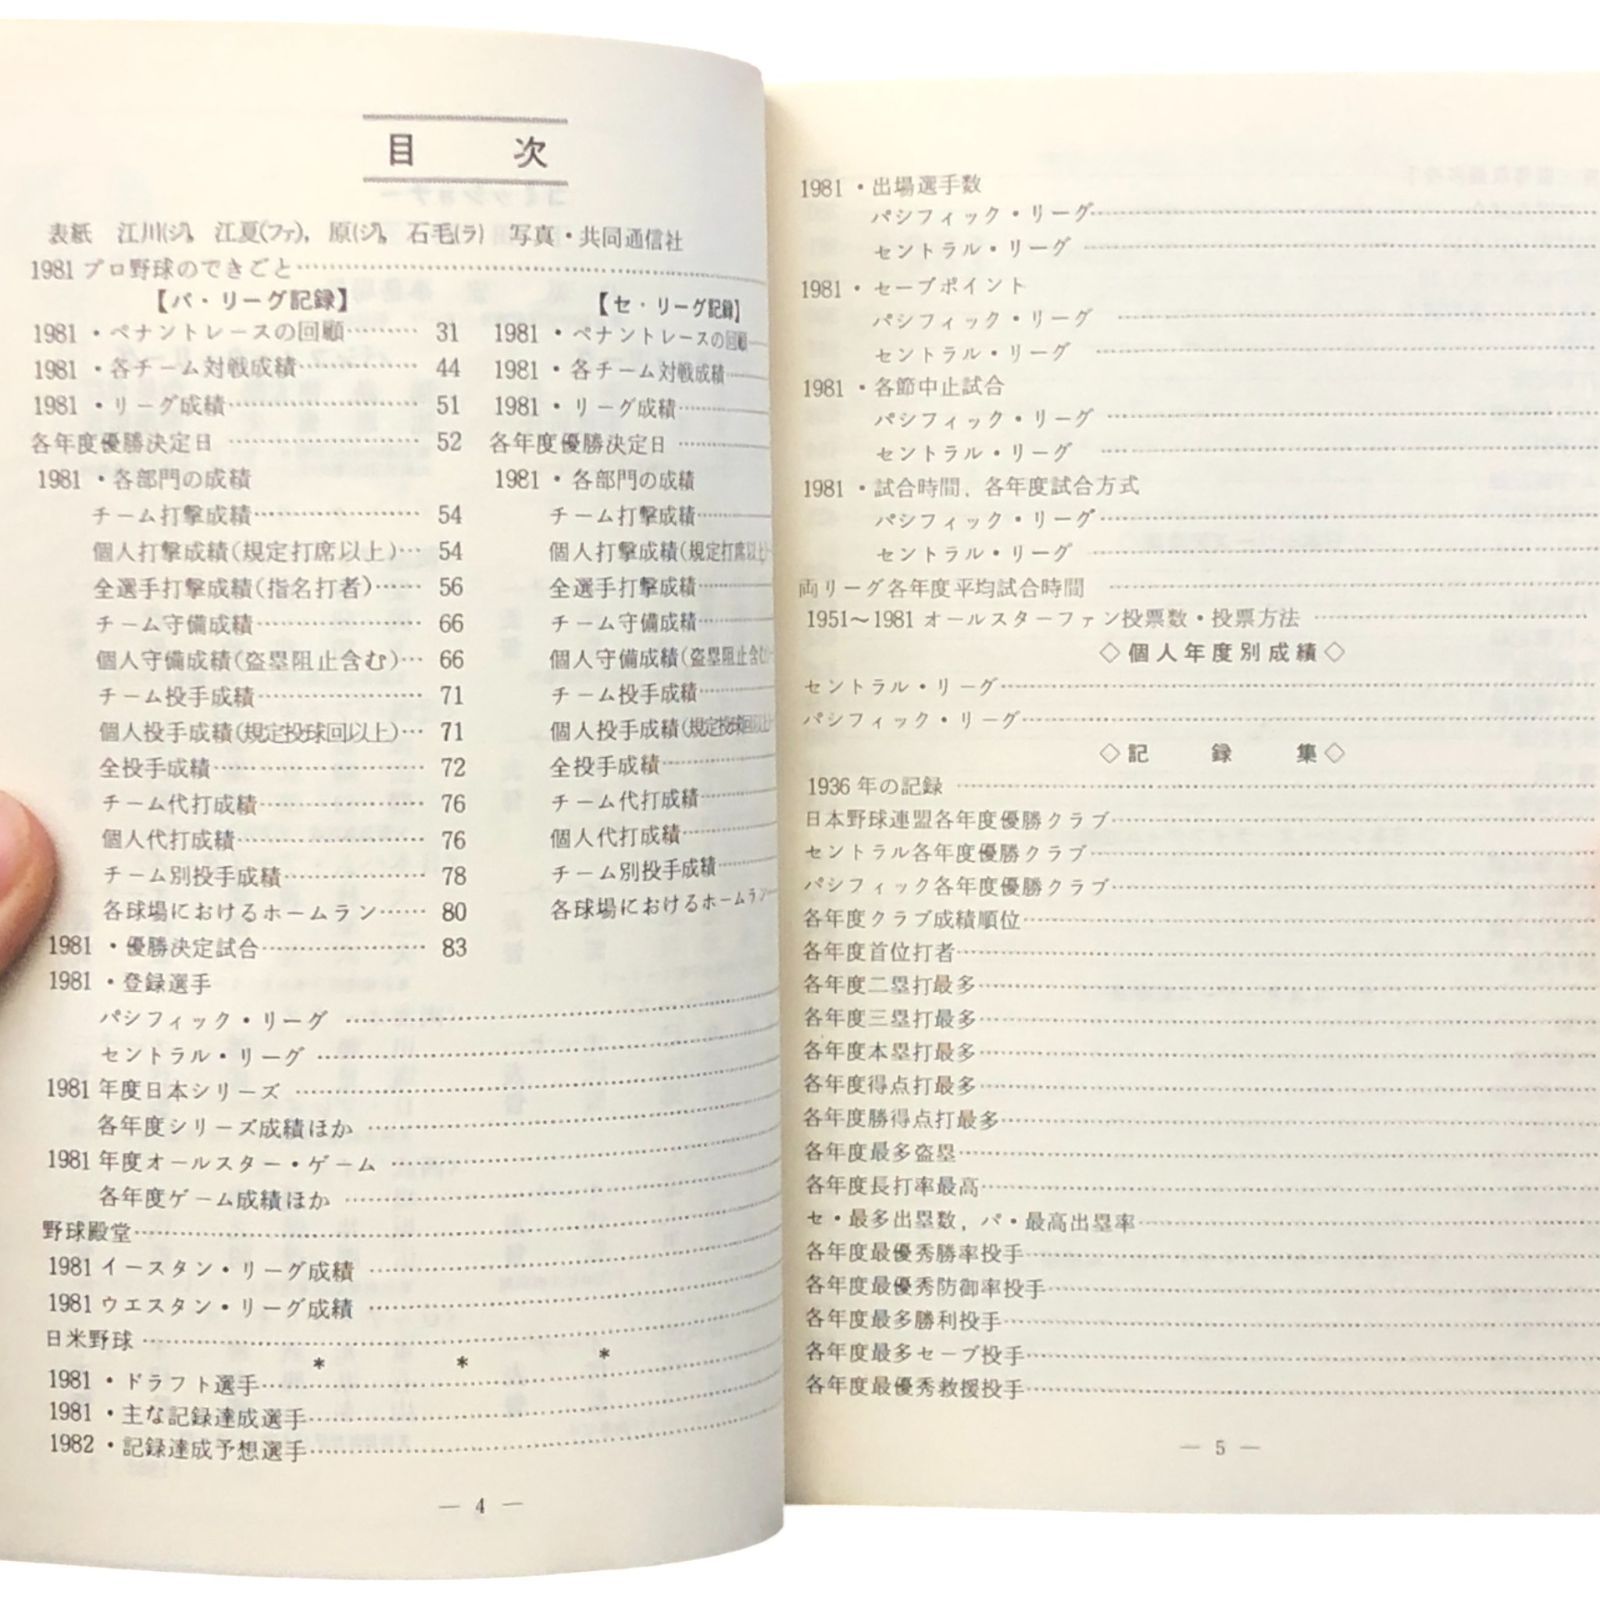 目　次
表紙　江川(ジ), 江夏(ファ), 原(ジ), 石毛(ラ)　写真・共同通信社
1981 プロ野球のできごと
【パ・リーグ記録】
1981・ペナントレースの回顧……… 31
1981・各チーム対戦成績…………… 44
1981・リーグ成績…………………… 51
各年度優勝決定日 …………………… 52
1981・各部門の成績
チーム打撃成績…………………… 54
個人打撃成績(規定打席以上)… 54
全選手打撃成績(指名打者)…… 56
チーム守備成績…………………… 66
個人守備成績(盗塁阻止含む)… 66
チーム投手成績…………………… 71
個人投手成績(規定投球回以上)… 71
全投手成績………………………… 72
チーム代打成績…………………… 76
個人代打成績……………………… 76
チーム別投手成績………………… 78
各球場におけるホームラン…… 80
1981・優勝決定試合………………… 83
【セ・リーグ記録】
1981・ペナントレースの回顧
1981・各チーム対戦成績
1981・リーグ成績
各年度優勝決定日
1981・各部門の成績
チーム打撃成績
個人打撃成績(規定打席以上)
全選手打撃成績
チーム守備成績
個人守備成績(盗塁阻止含む)
チーム投手成績
個人投手成績(規定投球回以上)
全投手成績
チーム代打成績
個人代打成績
チーム別投手成績
各球場におけるホームラン
1981・登録選手
パシフィック・リーグ
セントラル・リーグ
1981 年度日本シリーズ
各年度シリーズ成績ほか
1981 年度オールスター・ゲーム
各年度ゲーム成績ほか
野球殿堂
1981 イースタン・リーグ成績
1981 ウエスタン・リーグ成績
日米野球
* * *
1981・ドラフト選手
1981・主な記録達成選手
1982・記録達成予想選手
— 4 —
1981・出場選手数
パシフィック・リーグ
セントラル・リーグ
1981・セーブポイント
パシフィック・リーグ
セントラル・リーグ
1981・各節中止試合
パシフィック・リーグ
セントラル・リーグ
1981・試合時間, 各年度試合方式
パシフィック・リーグ
セントラル・リーグ
両リーグ各年度平均試合時間
1951～1981 オールスターファン投票数・投票方法
◇個人年度別成績◇
セントラル・リーグ
パシフィック・リーグ
◇記　録　集◇
1936 年の記録
日本野球連盟各年度優勝クラブ
セントラル各年度優勝クラブ
パシフィック各年度優勝クラブ
各年度クラブ成績順位
各年度首位打者
各年度二塁打最多
各年度三塁打最多
各年度本塁打最多
各年度得点打最多
各年度勝得点打最多
各年度最多盗塁
各年度長打率最高
セ・最多出塁数, パ・最高出塁率
各年度最優秀勝率投手
各年度最優秀防御率投手
各年度最多勝利投手
各年度最多セーブ投手
各年度最優秀救援投手
— 5 —